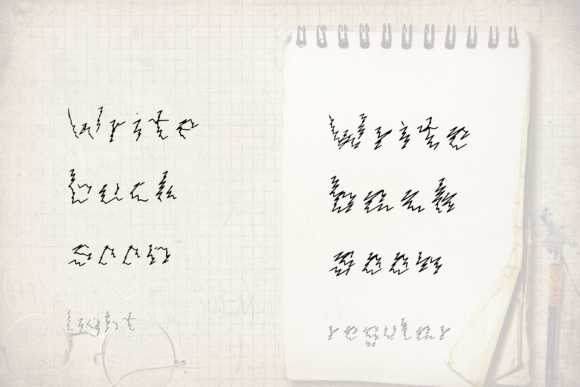 Write
back
soon
light
Write
back
soon
regular